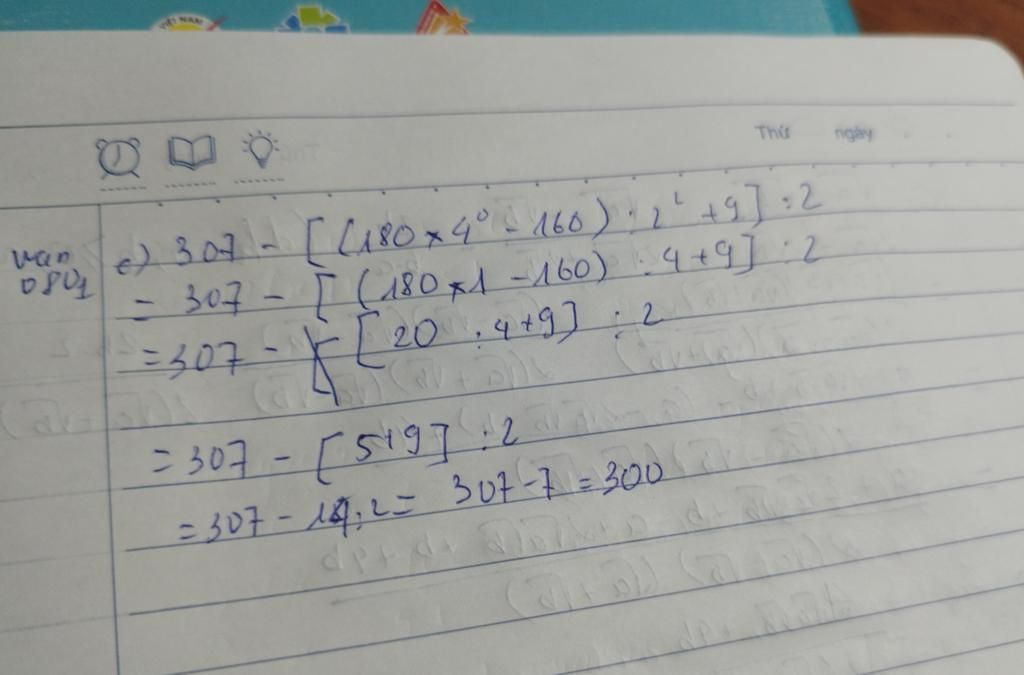 VIỆT NAM
Thứ ngày
van
0801
c) 307 - [(180 x 4⁰ - 160) : 2² + 9] : 2
= 307 - [(180 x 1 - 160) : 4 + 9] : 2
= 307 - [20 : 4 + 9] : 2
= 307 - [5 + 9] : 2
= 307 - 14 : 2 = 307 - 7 = 300